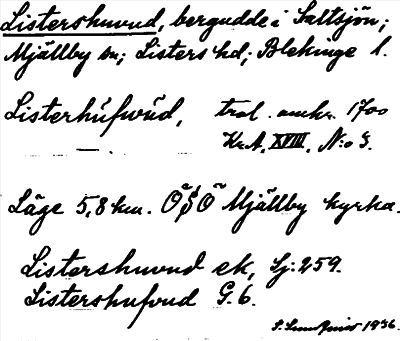 Listershuvud, bergudde i Saltsjön;
Mjällby sn; Listers hd; Blekinge l.
Listerhúfwŭd, trol. omkr. 1700
Kr.A. XVIII. N:o 3.
Läge 5,8 km. OSO Mjällby kyrka.
Listershuvud ek, Sj. 259.
Listershufvud G. 6.
1936.